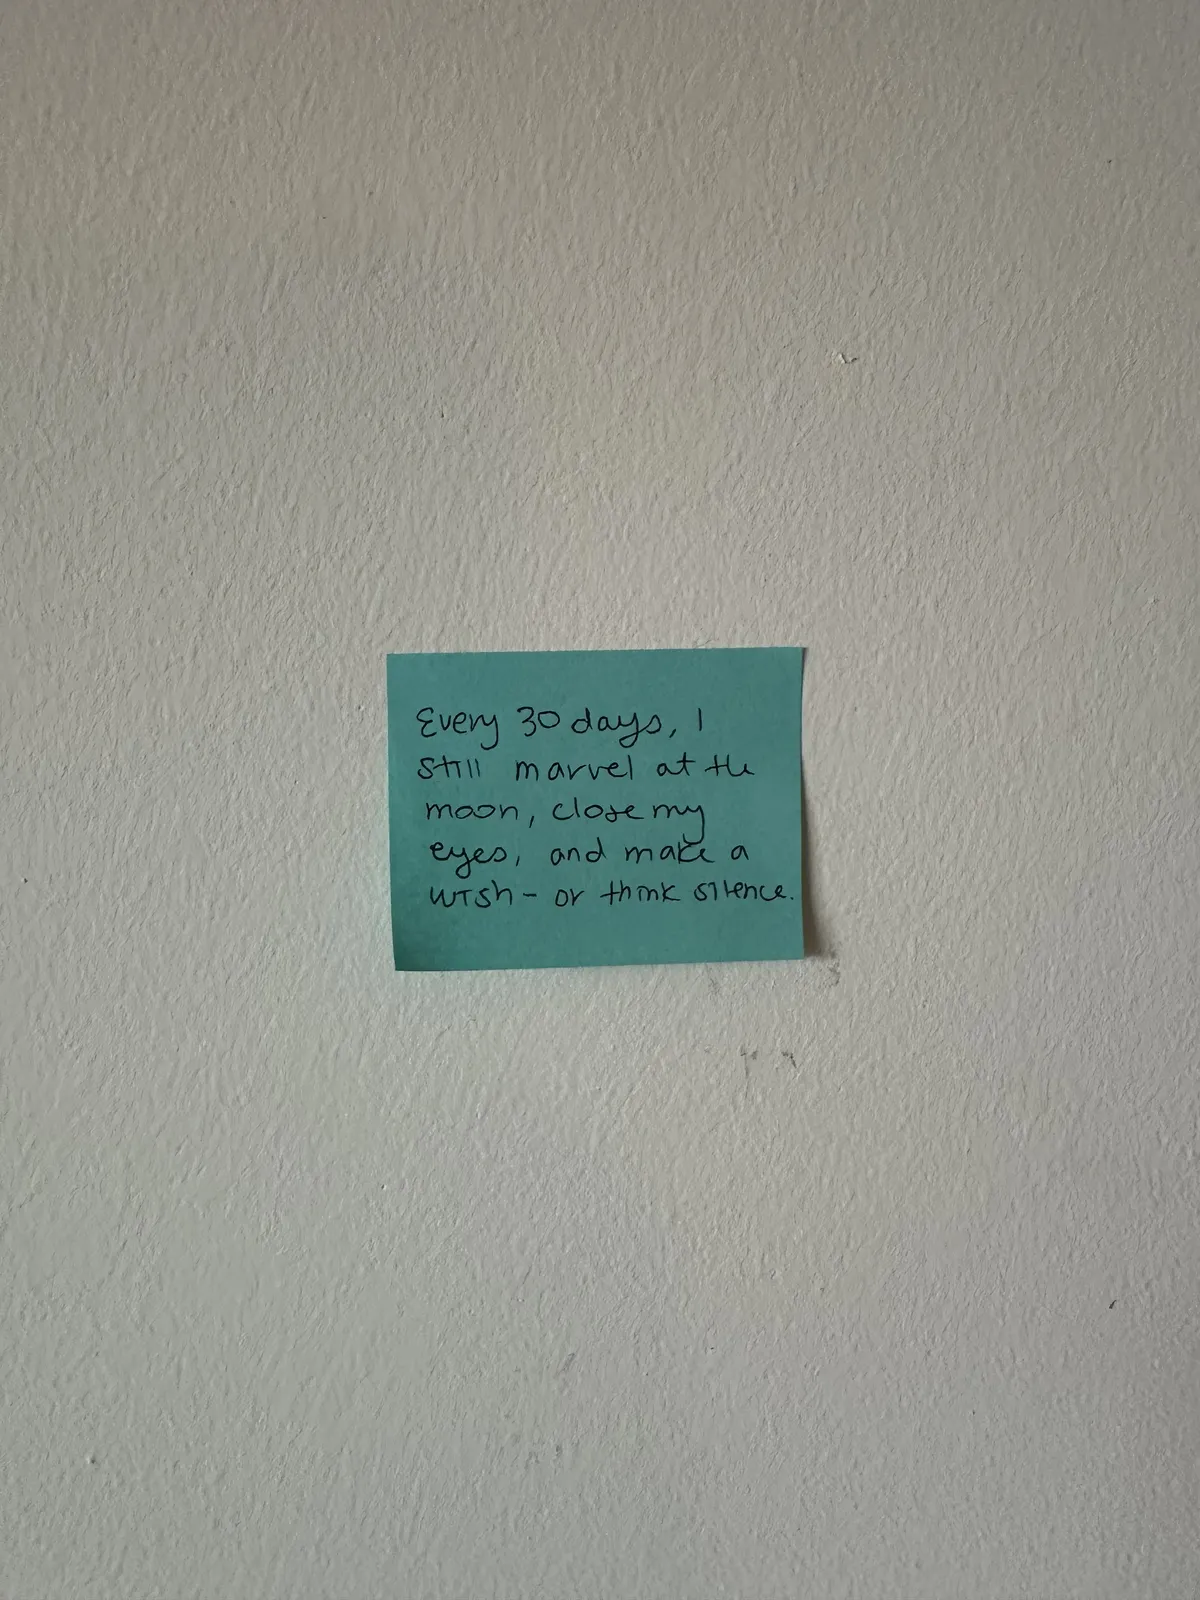 Every 30 days, I
still marvel at the
moon, close my
eyes, and make a
wish - or think silence.